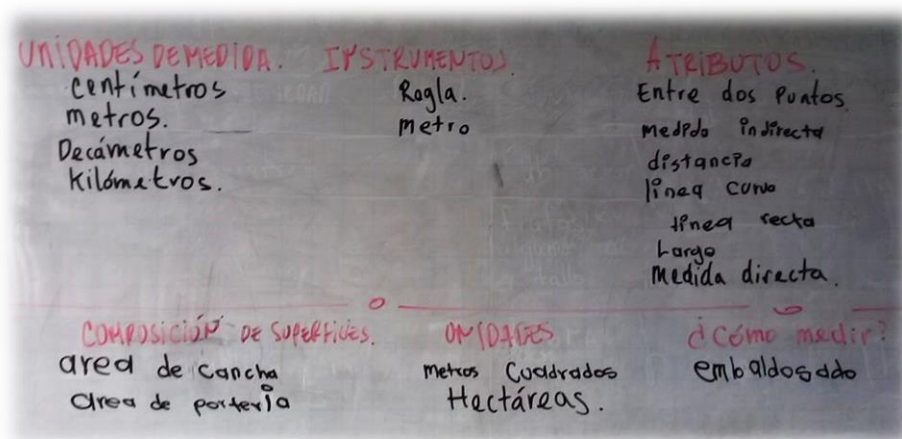 UNIDADES DE MEDIDA.
centímetros
metros.
Decámetros
Kilómetros.
INSTRUMENTOS.
Regla.
metro
ATRIBUTOS.
Entre dos puntos
medido indirecta
distancia
línea curva
línea recta
Largo
medida directa.
COMPOSICIÓN DE SUPERFICIES.
area de cancha
area de portería
UNIDADES
metros Cuadrados
Hectáreas.
¿Cómo medir?
embaldosado